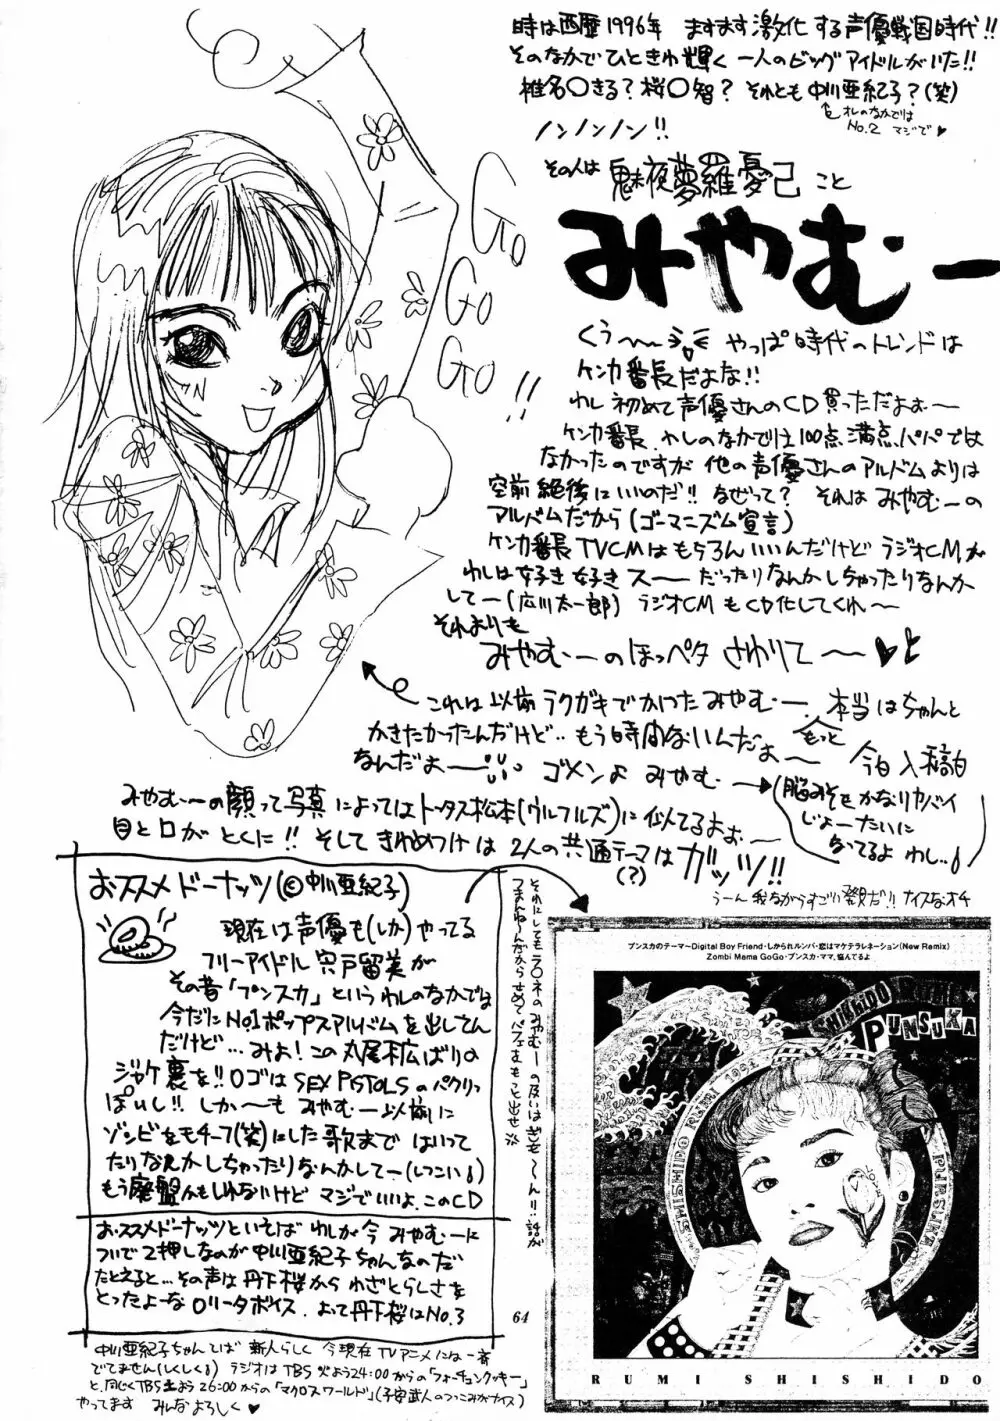 時は西暦1996年 ますます激化する声優戦国時代!!
そのなかでひときわ輝く一人のビッグアイドルがいた!!
椎名○きる?桜○智?それとも中川亜紀子?(笑)
オレのなかでは
No.2 マジで♥
ノンノンノン!!
その人は魅夜夢羅優己こと
みやむー
Go
Go
Go!!
くう〜〜 やっぱ時代のトレンドは
ケンカ番長だよな!!
わし初めて声優さんのCD買っただよぉ〜
ケンカ番長、わしのなかでは100点満点パパでは
なかったのですが他の声優さんのアルバムよりは
空前絶後にいいのだ!!なぜって?それはみやむーの
アルバムだから(ゴーマニズム宣言)
ケンカ番長TVCMはもちろんいいんだけどラジオCMが
わしは好き好きスー だったりなんかしちゃったりなんか
してー(広川太一郎) ラジオCMもCD化してくれ〜
それよりも
みやむーのほっペタさわりて〜♥
これは以前ラクガキでかいたみやむー、本当はちゃんと
かきたかったんだけど‥もう時間ないんだよ〜
もっと
今日入稿日
なんだよ〜 ゴメンよみやむー
(脳みそもかなりヤバイ
じょーたいに
なってるよ わし‥)
みやむーの顔って写真によってはトータス松本(ウルフルズ)に似てるよぉ〜
目と口がとくに!!そしてきわめつけは2人の共通テーマはガッツ!!
(?)
うーん我ながらすごい発見だ!!ナイスなオチ
おススメドーナッツ(©中川亜紀子)
現在は声優も(しか)やってる
フリーアイドル宍戸留美が
その昔「プンスカ」というわしのなかでは
今だにNo.1ポップスアルバムを出してん
だけど…みよ!この丸尾末広ばりの
ジャケ裏を!!ロゴはSEX PISTOLSのパクリっ
ぽいし!!しか〜もみやむー以前に
ゾンビをモチーフ(笑)にした歌まではいって
たりなんかしちゃったりなんかしてー(しつこい)
もう廃盤かもしれないけどマジでいいよ、このCD
おススメドーナッツといえばわしが今みやむーに
ついで2押しなのが中川亜紀子ちゃんなのだ
たとえると…その声は丹下桜からわざとらしさを
とったよーなロリータボイス、よって丹下桜はNo.3
中川亜紀子ちゃん
新人らしく今現在TVアニメには一番
でてません(しくしく) ラジオはTBS火よう24:00からの「フォーチュンクッキー」
と、同じくTBS土よう26:00からの「マクロスワールド」(子安武人のつっこみがナイス)
やってます みんなよろしく♥
それにしてもラ○ネのみやむーの扱いはぎも〜ん!!話が
つまんねーんだからせめて
もっと出せ
64
プンスカのテーマ〜Digital Boy Friend・しかられルンバ・恋はマケテラレネーション(New Remix)
Zombi Mama GoGo・プンスカ・ママ、悩んでるよ
SHISHIDO RUMI
PUNSUKA
SHISHIDO RUMI 1994
RUMI SHISHIDO